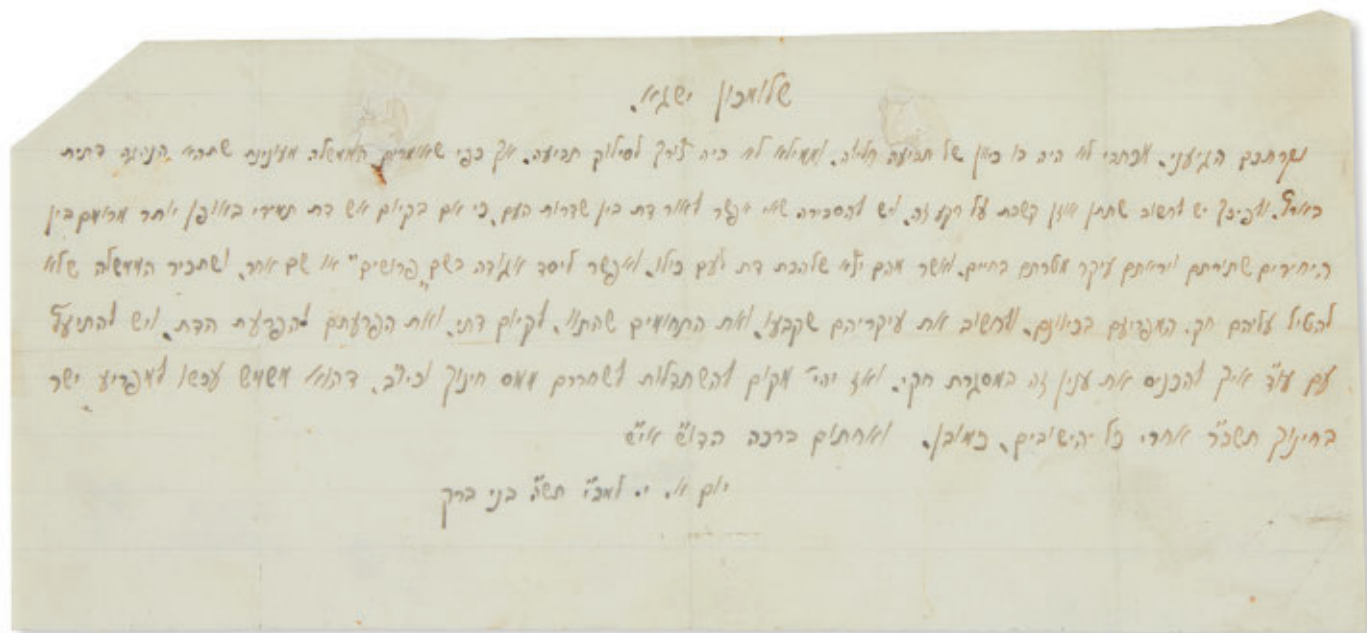 שלומכון ישגא.
יקרתכם הגיעני. מכתבי לא היה בו כאן של תביעה חלילה. וממילא לא היה צורך לסילוק תביעה. אך כפי שאומרים הממשלה מעונינת שתהא הנהגה דתית
בארץ. ולפיכך יש לחשוב שתתן אוזן קשבת על רקע זה. ויש להסבירה שאי אפשר לאור דת בין שדרות העם, כי אם בקיום אש דת תמידי באופן יותר מרומם בין
היחידים שתורתם ויראתם עיקר מטרתם בחיים. ואשר מהם יצא שלהבת דת לעם כולו. ואפשר ליסד אגודה בשם "פרושים" או שם אחר. ושתכיר הממשלה שלא
להטיל עליהם חק. המפריעם בכיוונם. ולחשוב את עיקריהם שקבעו. ואת התחומים שהתוו. לקיום דתי. ואת הפרעתם להפרעת הדת. ויש להתיעץ
עם עו"ד איך להכניס את ענין זה במסגרת חקי. ואז יהי' מקום להשתדלות לשחררם ממס חינוך וכיו"ב. דהוא משמש עכשו למפריע ישר
בחינוך תשב"ר אחרי כל הישובים. כמובן. ואחתום ברכה הדו"ש אי"ש
יום א. י. למב"י תש"ט בני ברק